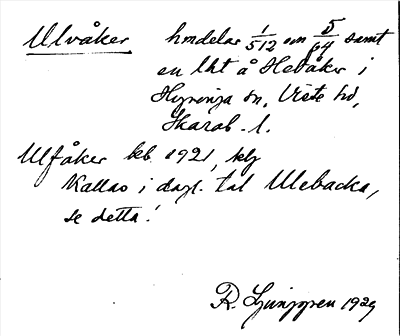 Ulvåker hmdelar 1/512 om 5/64 samt
en lht å Hebåker i
Hyringa sn, Viste hd,
Skarab. l.
Ulfåker kb. 1921, klg
Kallas i dagl. tal Ulebacka,
se detta!
R. Ljunggren 1929